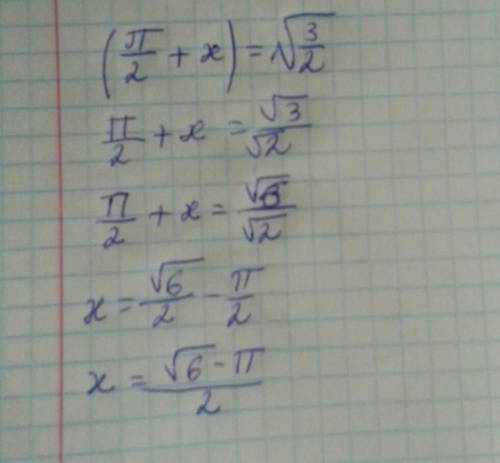 (π/2 + x) = √(3/2)
π/2 + x = √3/√2
π/2 + x = √6/√2
x = √6/2 - π/2
x = (√6 - π)/2